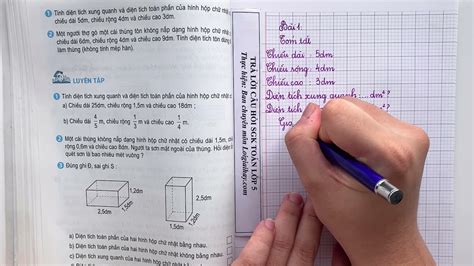 1 Tính diện tích xung quanh và diện tích toàn phần của hình hộp chữ nhật
chiều dài 5dm, chiều rộng 4dm và chiều cao 3dm.
2 Một người thợ gò một cái thùng tôn không nắp dạng hình hộp chữ nhật có
chiều dài 6dm, chiều rộng 4dm và chiều cao 9dm. Tính diện tích tôn dùng
làm thùng (không tính mép hàn).
LUYỆN TẬP
1 Tính diện tích xung quanh và diện tích toàn phần của hình hộp chữ nhật
a) Chiều dài 25dm, chiều rộng 1,5m và chiều cao 18dm ;
b) Chiều dài 4/5 m, chiều rộng 1/3 m và chiều cao 1/4 m.
2 Một cái thùng không nắp dạng hình hộp chữ nhật có chiều dài 1,5m,
rộng 0,6m và chiều cao 8dm. Người ta sơn mặt ngoài của thùng. Hỏi diện
quét sơn là bao nhiêu mét vuông ?
3 Đúng ghi Đ, sai ghi S :
1,2dm
2,5dm
1,5dm
2,5dm
1,5dm
1,2dm
a) Diện tích toàn phần của hai hình hộp chữ nhật bằng nhau.
b) Diện tích toàn phần của hai hình hộp chữ nhật không bằng nhau.
c) Diện tích xung quanh của hai hình hộp chữ nhật bằng nhau.
TRẢ LỜI CÂU HỎI SGK TOÁN LỚP 5
Thực hiện: Ban chuyên môn Loigiaihay.com
Bài 1
Tóm tắt
Chiều dài : 5dm
Chiều rộng : 4dm
Chiều cao : 3dm
Diện tích xung quanh : ... dm² ?
Diện tích dm² ?